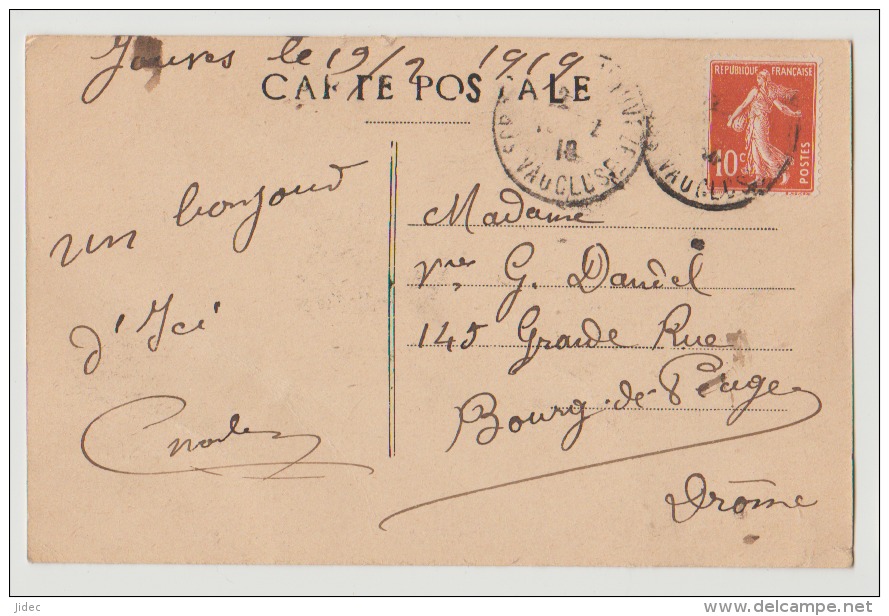 le 19/2 1919
CARTE POSTALE
RÉPUBLIQUE FRANÇAISE
10c
POSTES
VAUCLUSE
18
VAUCLUSE
un bonjour
d'Ici
Madame
Vve G. Daniel
145 Grande Rue
Bourg-de-Péage
Drôme
jidec
www.delcampe.net